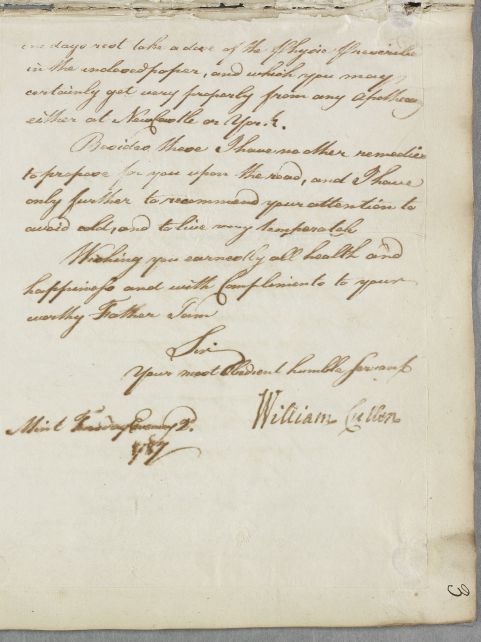 one days rest take a dose of the Physic I prescribe
in the inclosed paper, and which you may
certainly get very properly from any Apothecary
either at Newcastle or York.
Besides these I have no other remedies
to propose for you upon the road, and I have
only further to recommend your attention to
avoid cold, and to live very temperately
Wishing you earnestly all health and
happiness and with Compliments to your
worthy Father I am
Sir
Your most Obedient humble Servant
William Cullen
Mint
1787
3